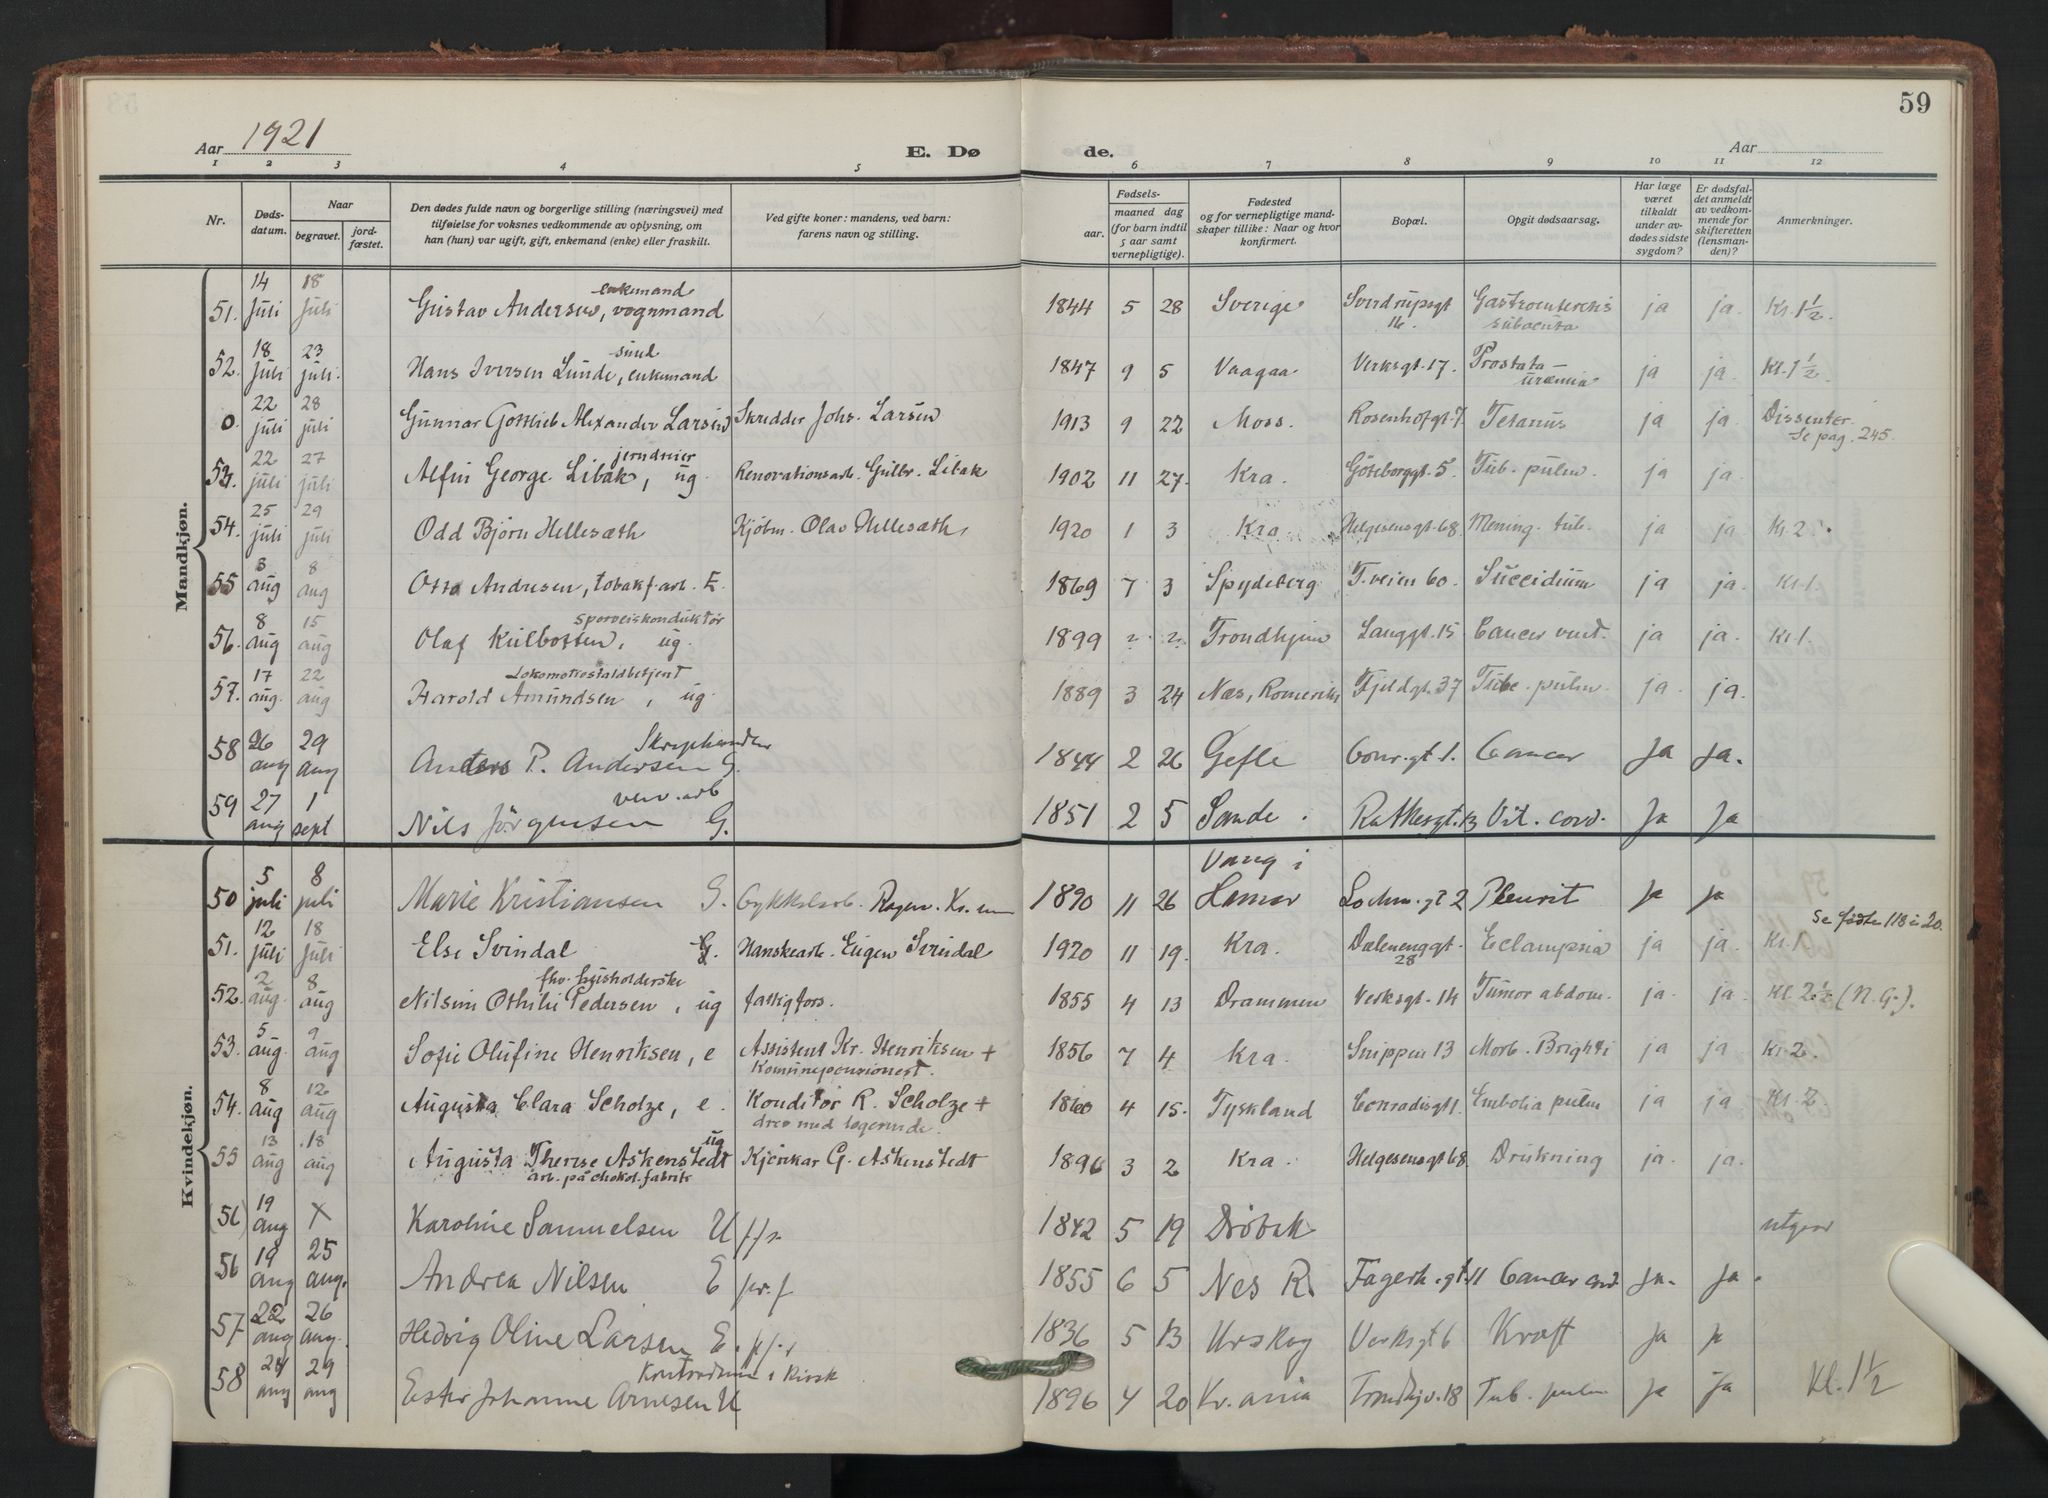 59
Aar 1921
E. Døde.
Aar
1 2 3 4 5 6 7 8 9 10 11 12
Nr.
Døds-datum.
Naar
begravet.
jord-fæstet.
Den dødes fulde navn og borgerlige stilling (næringsvei) med
tilføielse for voksnes vedkommende av oplysning, om
han (hun) var ugift, gift, enkemand (enke) eller fraskilt.
Ved gifte koner: mandens, ved barn:
farens navn og stilling.
Fødsels-
aar.
maaned
dag
(for barn indtil
5 aar samt
vernepligtige).
Fødested
og for vernepligtige mand-
skaper tillike: Naar og hvor
konfirmert.
Bopæl.
Opgit dødsaarsag.
Har læge
været
tilkaldt
under av-
dødes sidste
sygdom?
Er dødsfal-
det anmeldt
av vedkom-
mende for
skifteretten
(lensman-
den)?
Anmerkninger.
Mandkjøn.
51. 14 juli 18 juli Gustav Andersen, enkemand vognmand 1844 5 28 Sverige Sverdrupsgt 16. Gastroenteritis subacuta ja ja. Kl. 1 1/2.
52. 18 juli 23 juli. Hans Iversen Lunde, smed enkemand 1847 9 5 Vaagaa Verksgt. 17. Prostata – uræmia ja ja. Kl. 1 1/2.
0. 22 juli 28 juli Gunnar Gottlieb Alexander Larsen Skredder Johs. Larsen 1913 9 22 Moss. Rosenhofgt. 7. Tetanus ja ja. Dissenter. Se pag. 245.
53. 22 juli 27 juli Alfin George Libak, jerndreier ug. Renovationsarb. Gulbr. Libak 1902 11 27. Kra. Göteborggt. 5 Tub. pulm. ja ja.
54. 25 juli 29 juli Odd Bjørn Hellesæth Kjøbm. Olav Hellesæth 1920 1 3 Kra. Helgesensgt. 68. Mening. tub. ja ja. Kl. 2.
55 3 aug 8 aug Otto Andresen, tobakf.arb. E. 1869 7 3 Spydeberg T.veien 60. Suicidium ja ja. Kl. 1.
56. 8 aug 15 aug Olaf Kulbotten, sporveiskonduktør ug. 1899 2. 2. Trondhjem Langgt. 15 Cancer vent. ja ja. Kl. 1.
57. 17 aug. 22 aug Harald Amundsen, Lokomotivstaldbetjent ug. 1889 3 24 Næs, Romerike Fjeldgt. 37 Tube. pulm. ja. ja.
58 26 aug 29 aug Anders P. Andersen G. Skraphandler 1844 2 26 Gefle Conr.gt 1. Cancer Ja Ja.
59 27 aug 1 sept Nils Jörgensen verv.arb G. 1851 2 5 Sande Rathkesgt. 13 Vit. cord. Ja Ja
Kvindekjøn.
50 5 juli 8 juli Marie Kristiansen G. Cykkelarb. Ragnv. Kr.sen 1890 11 26 Vang i Hamar Lochm.gt 2 Pleurit Ja Ja
51. 12 juli 18 juli Else Svindal G. Hanskearb. Eugen Svindal 1920 11 19. Kra. Dælenenggt. 28 Eclampsia ja ja. Kl. 1 Se fødte 118 i 20.
52. 2 aug. 8 aug Nilsine Othilie Pedersen, fhv. husholderske ug fattigfors. 1855 4 13 Drammen Verksgt. 14 Tumor abdom. ja. ja. Kl. 2 1/2 (N. G.).
53. 5 aug. 9 aug Sofie Olufine Henriksen, e Assistent Kr. Henriksen + Kommunepensionist. 1856 7 4 Kra. Snippen 13 Morb. Brighti ja ja. Kl. 2.
54. 8 aug 12 aug Augusta Clara Scholze, e. Konditor R. Scholze + drev med logerende. 1860 4 15. Tyskland Conradisgt 1. Embolia pulm ja ja Kl. 2.
55 13 aug 18 aug Augusta Therese Askenstedt ug arb. på chokol.fabrik Kjørekar G. Askenstedt 1896 3 2 Kra. Helgesensgt 68. Drukning ja. ja.
(56) 19 aug X Karoline Samuelsen U ffr 1842 5 19 Drøbak utgaar
56 19 aug 25 aug. Andrea Nilsen E pr. f 1855 6 5 Nes R. Fagerh.gt. 11 Cancer Ja. Ja.
57 22 aug 26 aug. Hedvig Oline Larsen E. 1836 5 13 Urskog Verksgt 6 Kræft Ja Ja
58 24 aug 29 aug Ester Johanne Arnesen U i Kiosk 1896 4 20 Kr.ania Trondhjv. 18 Tub. pulm Ja Ja Kl. 1 1/2